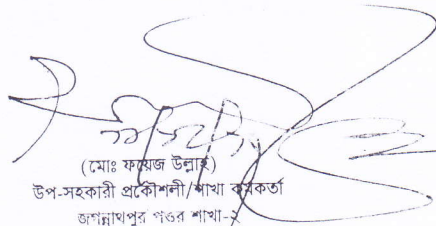 (মোঃ ফয়েজ উল্লাহ)
উপ-সহকারী প্রকৌশলী/শাখা কর্মকর্তা
জগন্নাথপুর পওর শাখা-২